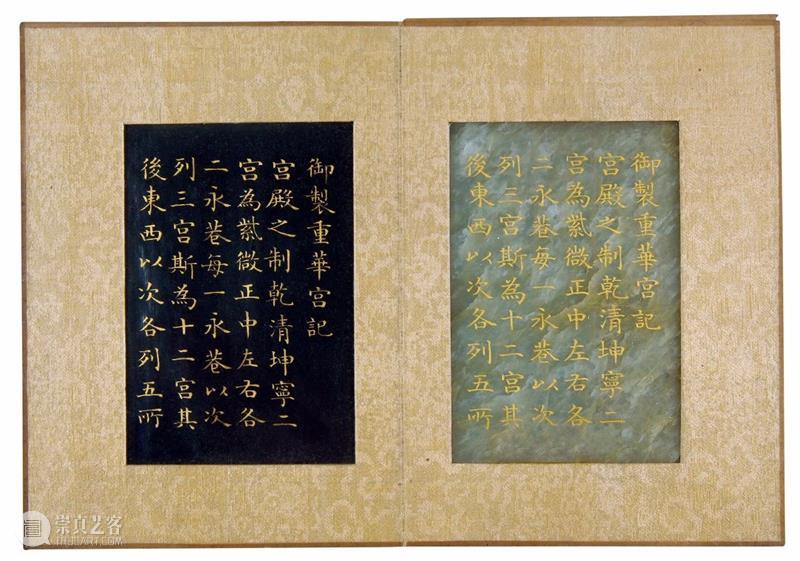 御製重華宮記
宮殿之制乾清坤寧二
宮為紫微正中左右各
二永巷每一永巷以次
列三宮斯為十二宮其
後東西以次各列五所
御製重華宮記
宮殿之制乾清坤寧二
宮為紫微正中左右各
二永巷每一永巷以次
列三宮斯為十二宮其
後東西以次各列五所
崇真艺客